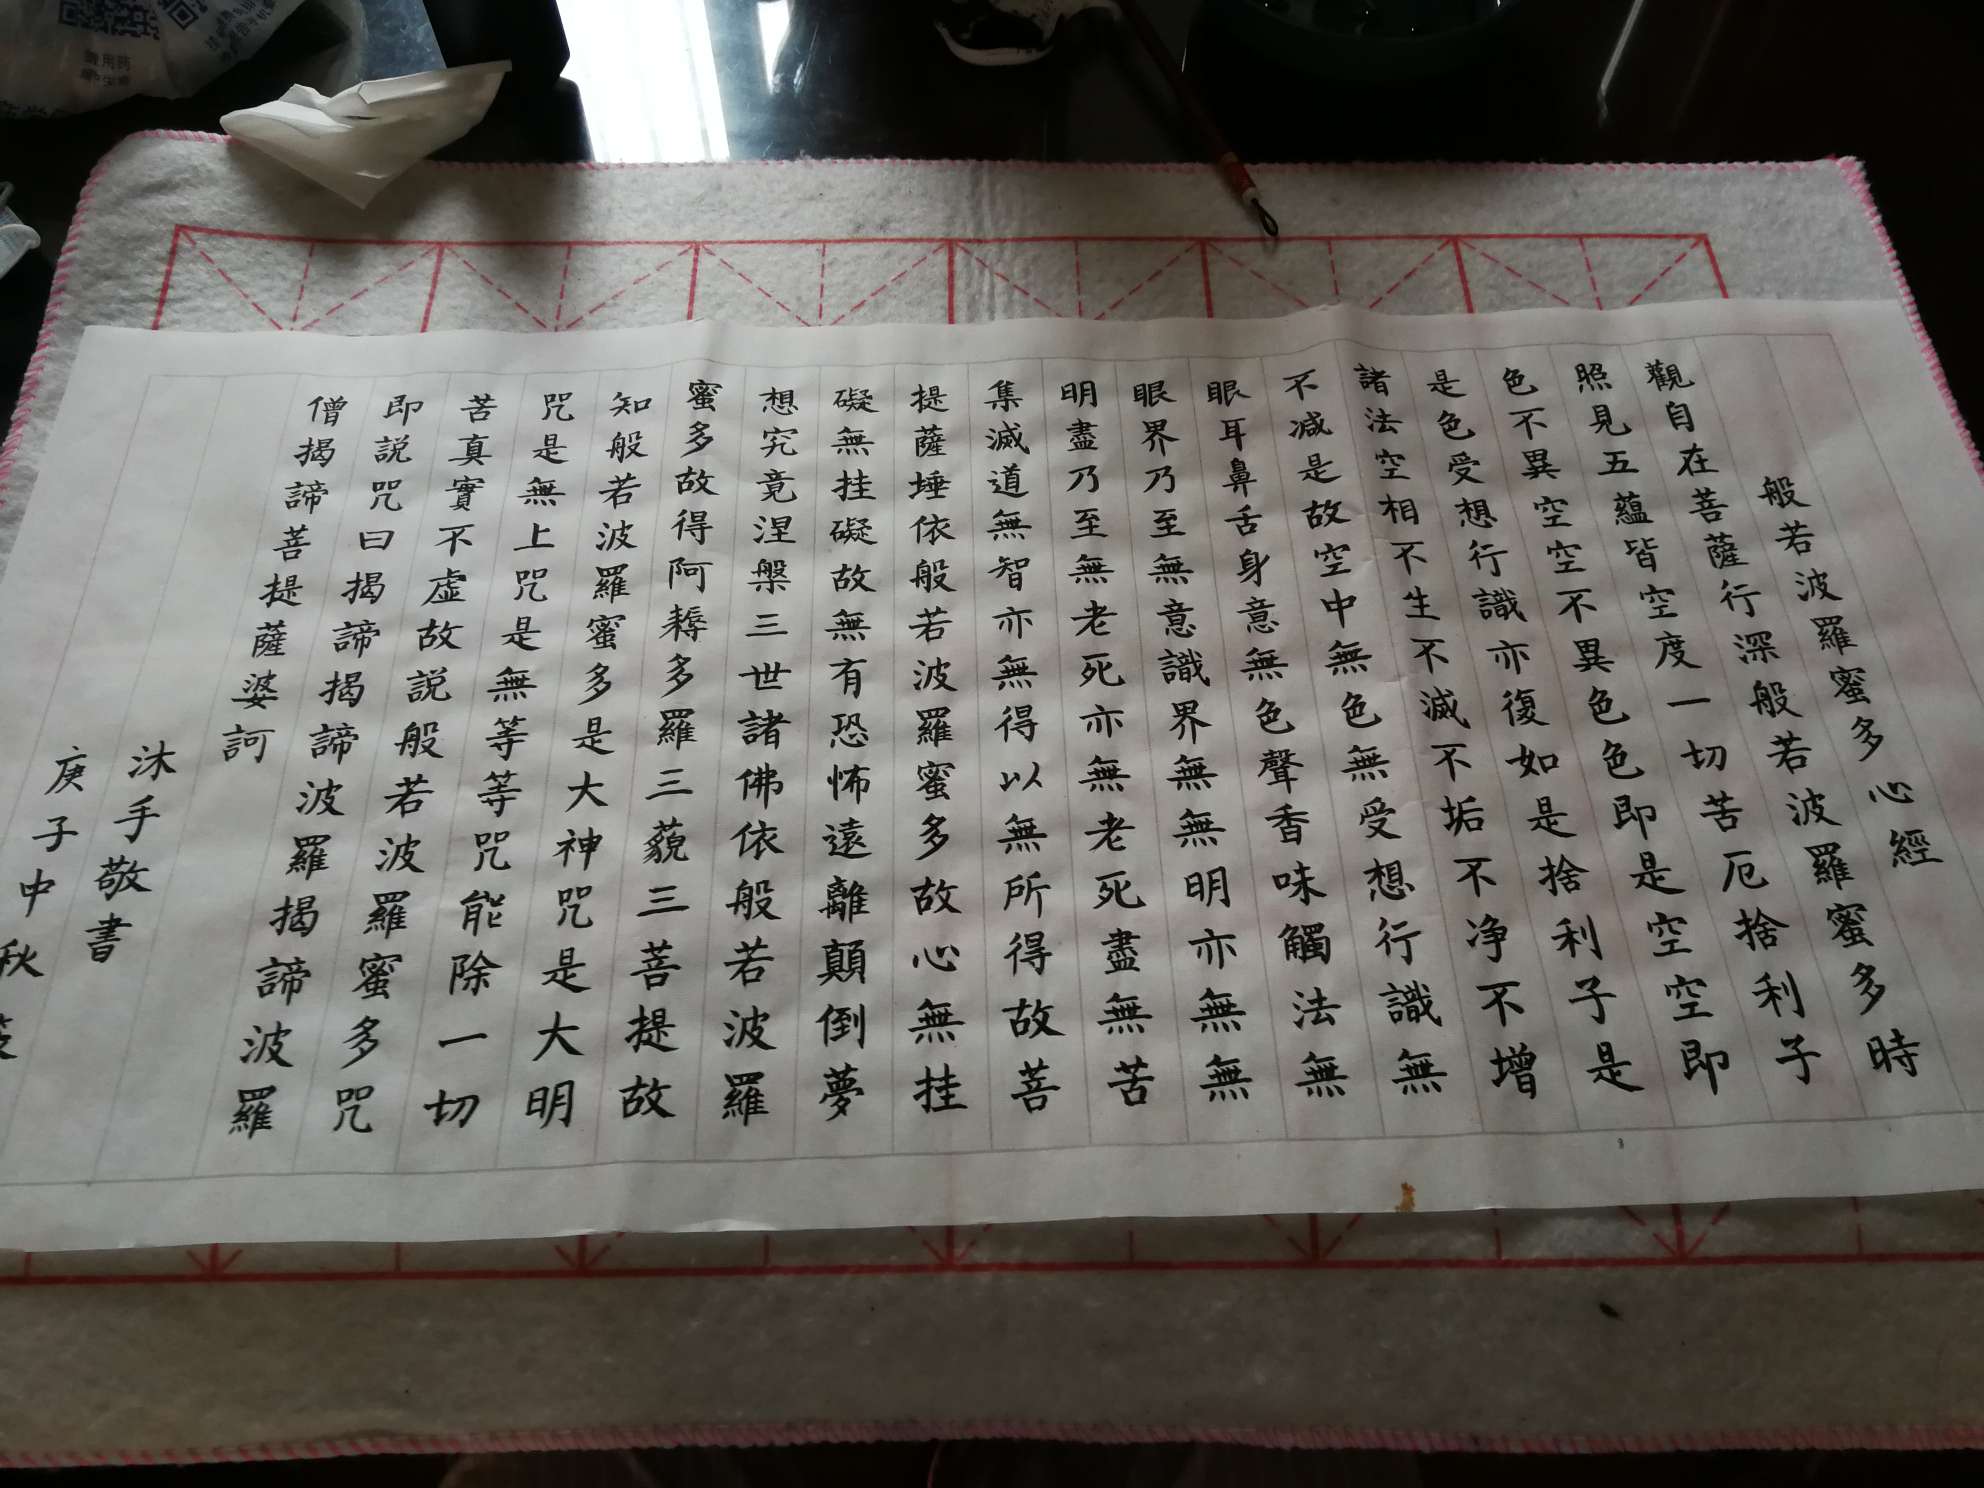 般若波羅蜜多心經
觀自在菩薩行深般若波羅蜜多時
照見五蘊皆空度一切苦厄捨利子
色不異空空不異色色即是空空即
是色受想行識亦復如是捨利子是
諸法空相不生不滅不垢不净不增
不減是故空中無色無受想行識無
眼耳鼻舌身意無色聲香味觸法無
眼界乃至無意識界無無明亦無無
明盡乃至無老死亦無老死盡無苦
集滅道無智亦無得以無所得故菩
提薩埵依般若波羅蜜多故心無挂
礙無挂礙故無有恐怖遠離顛倒夢
想究竟涅槃三世諸佛依般若波羅
蜜多故得阿耨多羅三藐三菩提故
知般若波羅蜜多是大神咒是大明
咒是無上咒是無等等咒能除一切
苦真實不虛故説般若波羅蜜多咒
即説咒曰揭諦揭諦波羅揭諦波羅
僧揭諦菩提薩婆訶
沐手敬書
庚子中秋